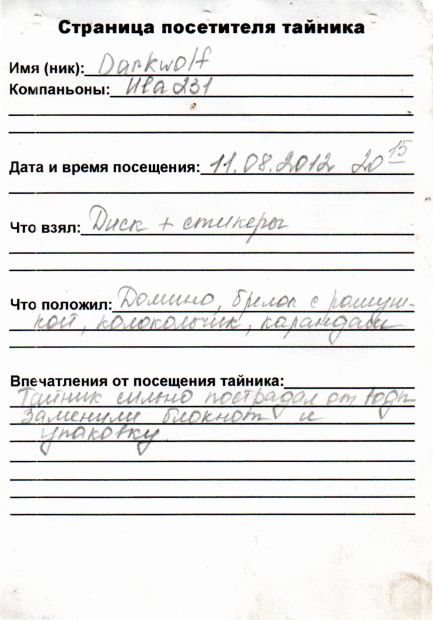 Страница посетителя тайника
Имя (ник): Darkwolf
Компаньоны: Ula231
Дата и время посещения: 11.08.2012 20 15
Что взял: Диск + стикеры
Что положил: Домино, брелок с ромуш-
кой, колокольчик, карандаш
Впечатления от посещения тайника:
Тайник сильно пострадал от воды
Заменили блокнот и
упаковку